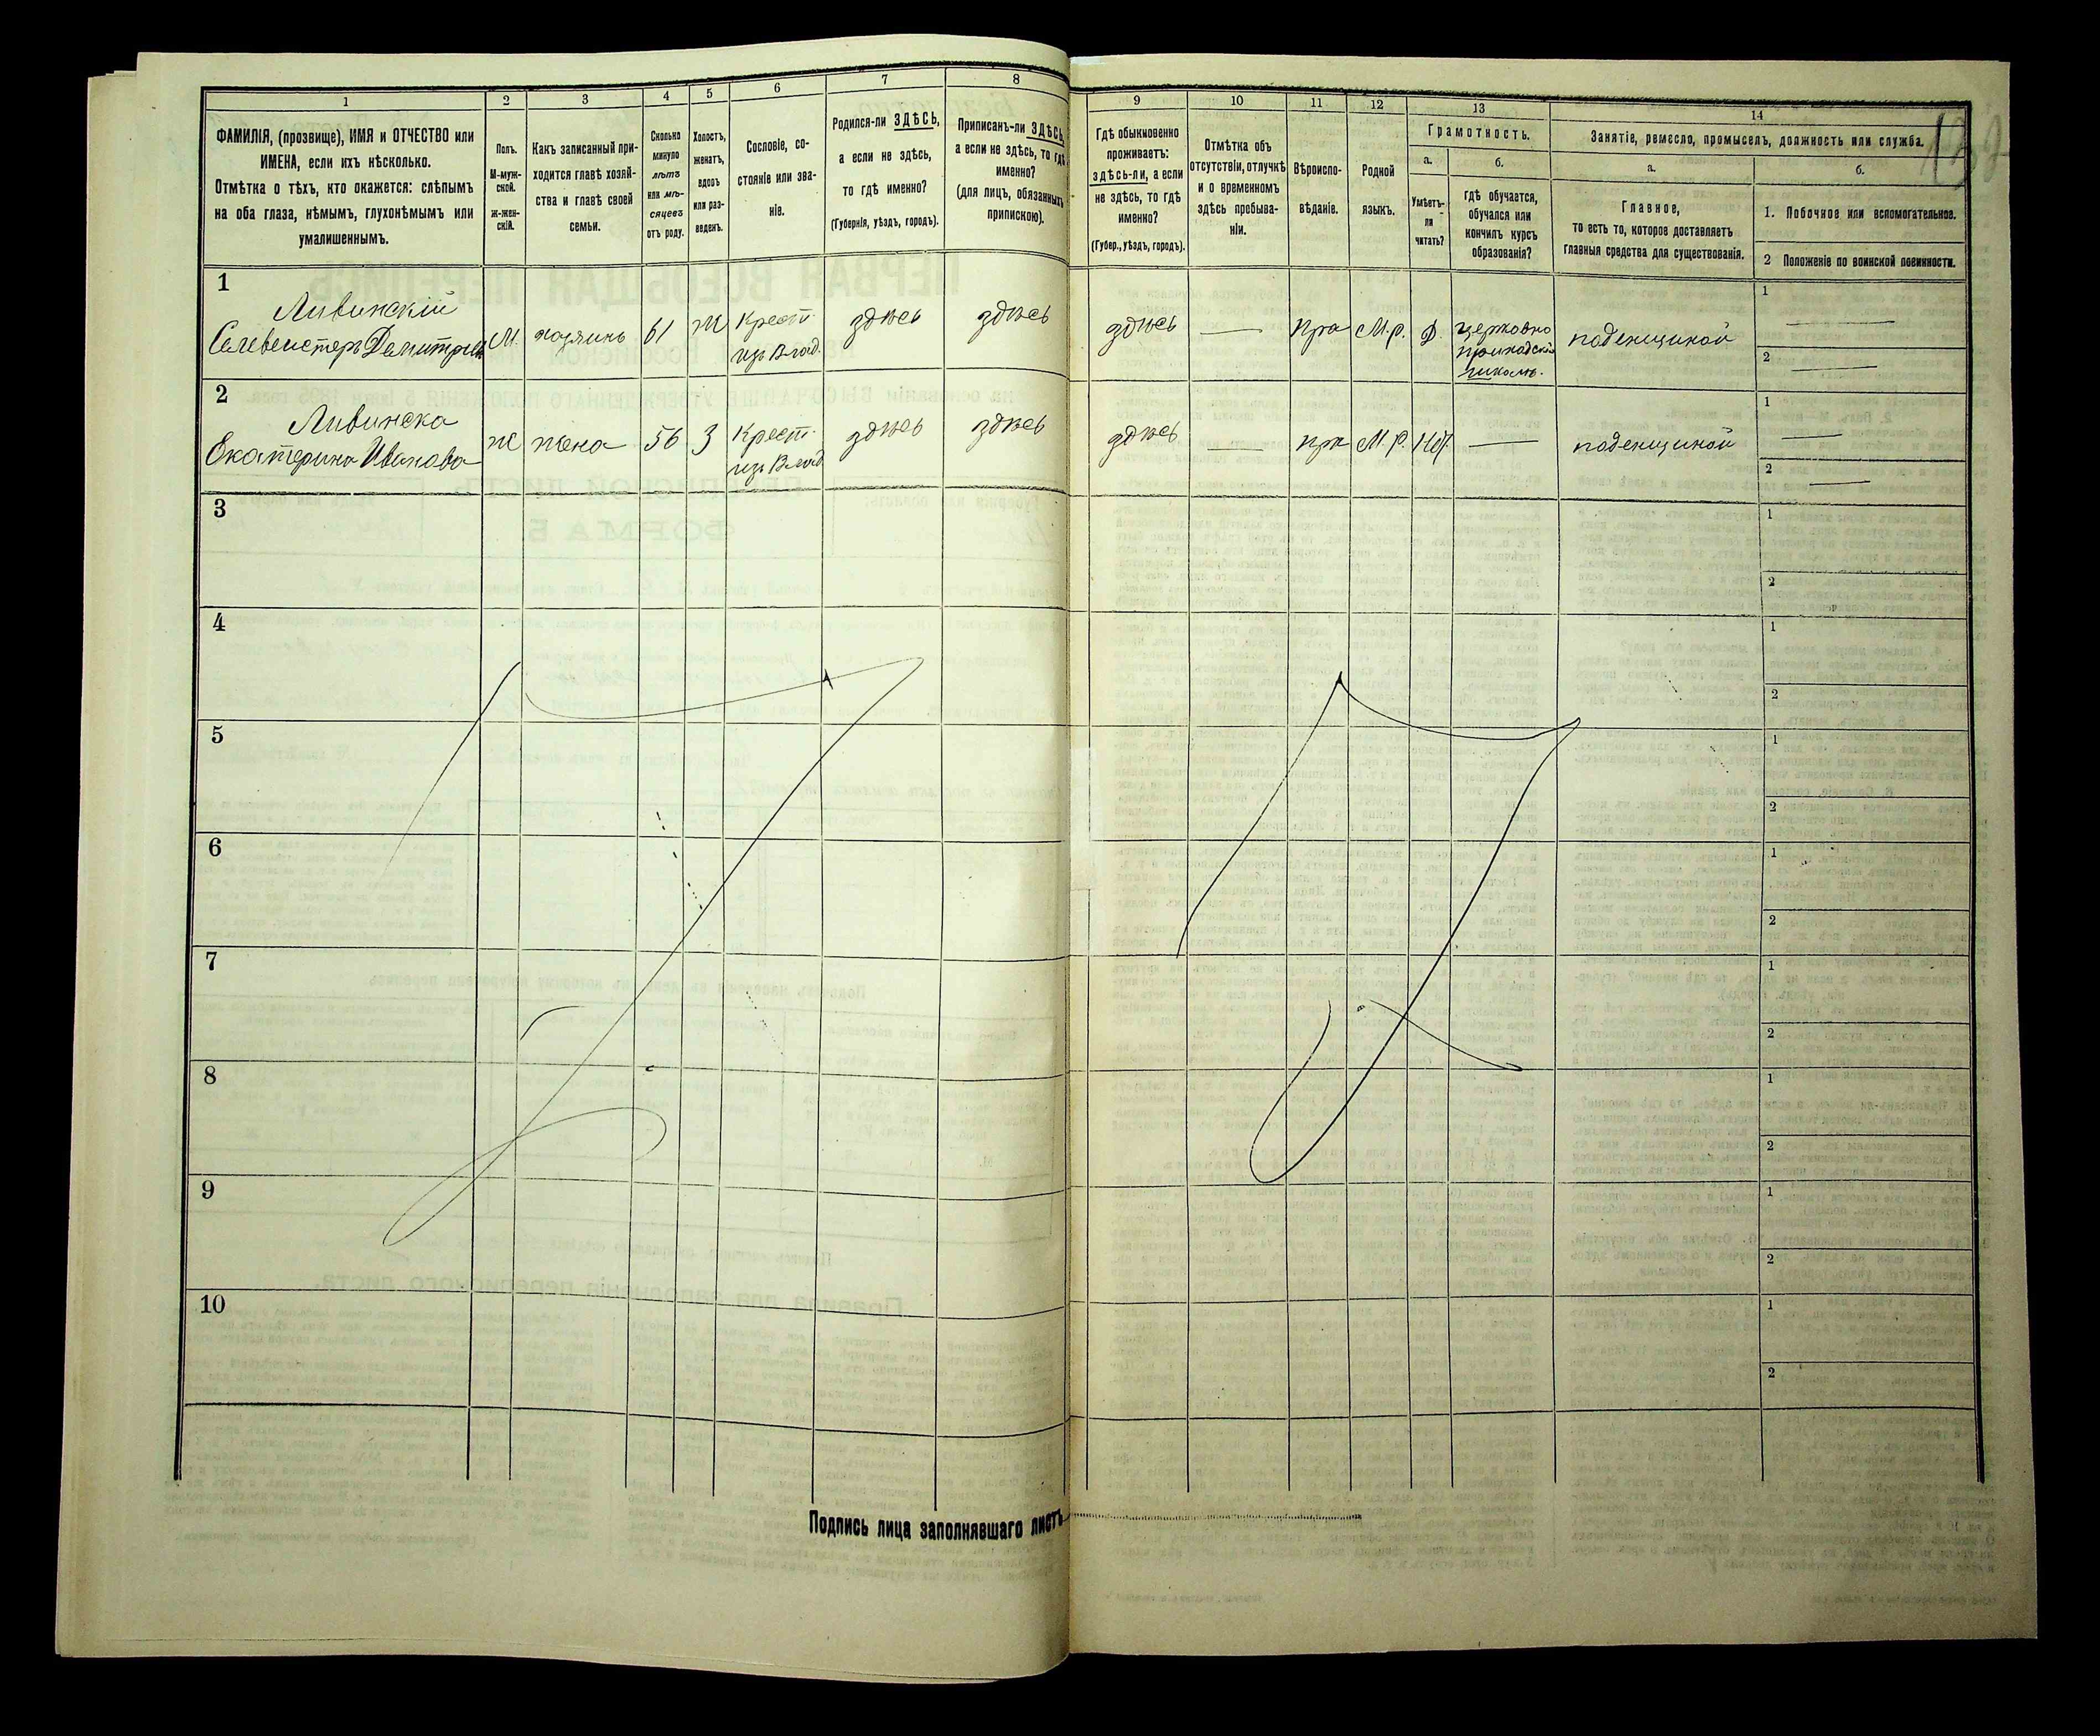 1
ФАМИЛІЯ, (прозвище), ИМЯ и ОТЧЕСТВО или
ИМЕНА, если ихъ нѣсколько.
Отмѣтка о тѣхъ, кто окажется: слѣпымъ
на оба глаза, нѣмымъ, глухонѣмымъ или
умалишеннымъ.
2
Полъ.
М-муж-
ской.
ж-жен-
скій.
3
Какъ записанный при-
ходится главѣ хозяй-
ства и главѣ своей
семьи.
4
Сколько
минуло
лѣтъ
или мѣ-
сяцевъ
отъ роду.
5
Холостъ,
женатъ,
вдовъ
или раз-
веденъ.
6
Сословіе, со-
стояніе или зва-
ніе.
7
Родился-ли ЗДѢСЬ,
а если не здѣсь,
то гдѣ именно?
(Губернія, уѣздъ, городъ).
8
Приписанъ-ли ЗДѢСЬ,
а если не здѣсь, то гдѣ
именно?
(для лицъ, обязанныхъ
припискою).
9
Гдѣ обыкновенно
проживаетъ:
здѣсь-ли, а если
не здѣсь, то гдѣ
именно?
(Губер., уѣздъ, городъ).
10
Отмѣтка объ
отсутствіи, отлучкѣ
и о временномъ
здѣсь пребыва-
ніи.
11
Вѣроиспо-
вѣданіе.
12
Родной
языкъ.
13
Грамотность.
а.
Умѣетъ-
ли
читать?
б.
гдѣ обучается,
обучался или
кончилъ курсъ
образованія?
14
Занятіе, ремесло, промыселъ, должность или служба.
а.
Главное,
то есть то, которое доставляетъ
главныя средства для существованія.
б.
1. Побочное или вспомогательное.
2 Положеніе по воинской повинности.
1
Ливинскій
Селевестеръ Демитріев
М.
хозяинъ
61
Ж
Крест
изъ Влад.
здѣсь
здѣсь
здѣсь
—
Пра
М.р.
Д.
Церковно
приходской
школъ.
поденщиной
1 —
2 —
2
Ливинска
Екатерина Иванова
ж
жена
56
З
Крест.
изъ Влад
здѣсь
здѣсь
здѣсь
—
пра
М.р.
Нѣт
—
поденщиной
1 —
2 —
3
1
2
4
1
2
5
1
2
6
1
2
7
1
2
8
1
2
9
1
2
10
1
2
Подпись лица заполнявшаго листъ